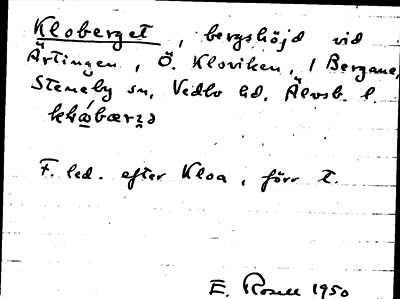 Kloberget, bergshöjd vid
Ärtingen, Ö. Kloviken, 1 Bergane,
Steneby sn, Vedbo hd, Älvsb. l.
F. led. efter Kloa, förr t.
E. Rosell 1950